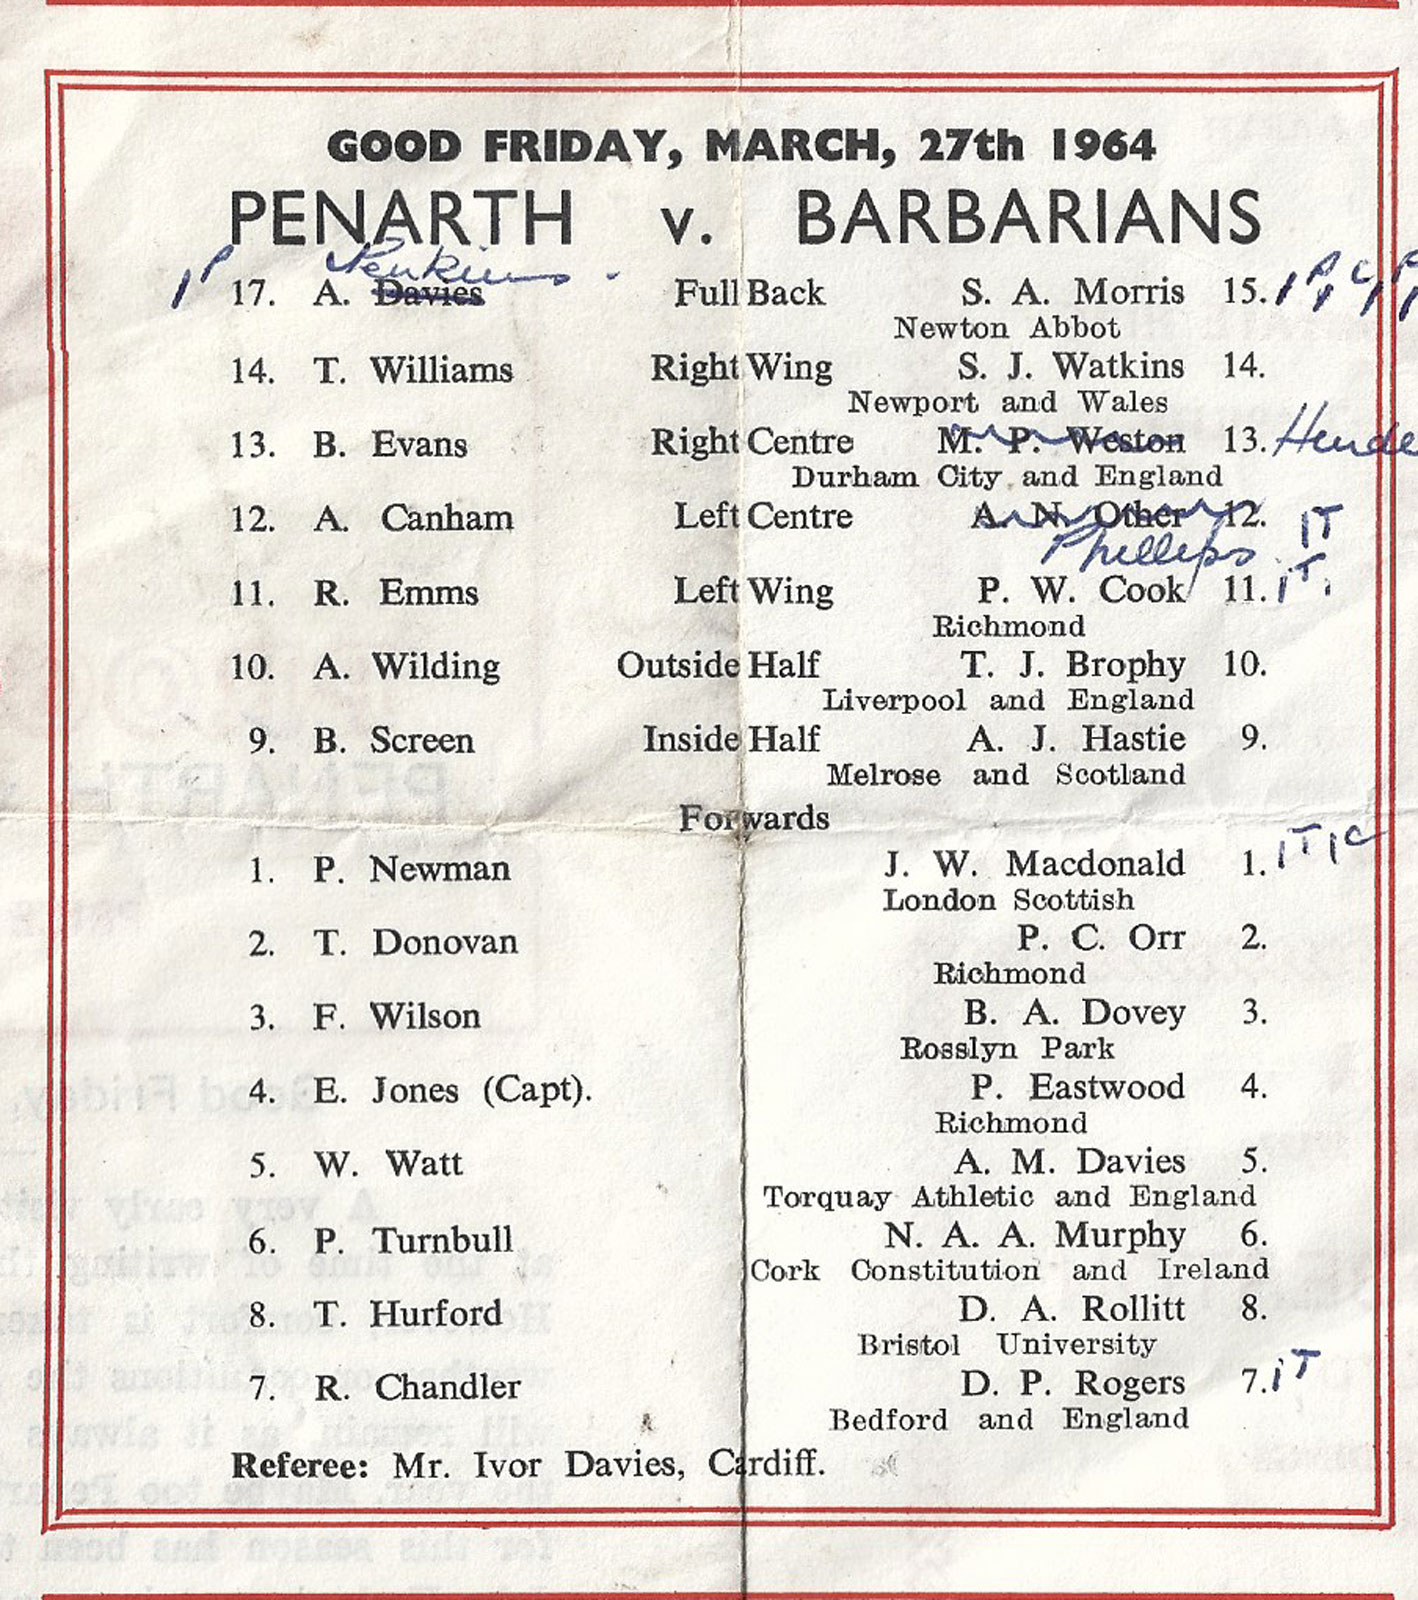 GOOD FRIDAY, MARCH, 27th 1964
PENARTH v. BARBARIANS
Jenkins
1P 17. A. Davies Full Back S. A. Morris 15. 1P 1C 1P
Newton Abbot
14. T. Williams Right Wing S. J. Watkins 14.
Newport and Wales
13. B. Evans Right Centre M. P. Weston 13.
Durham City and England
12. A. Canham Left Centre A. N. Other 12. 1T
Phillips
11. R. Emms Left Wing P. W. Cook 11. 1T.
Richmond
10. A. Wilding Outside Half T. J. Brophy 10.
Liverpool and England
9. B. Screen Inside Half A. J. Hastie 9.
Melrose and Scotland
Forwards
1. P. Newman J. W. Macdonald 1. 1T 1C
London Scottish
2. T. Donovan P. C. Orr 2.
Richmond
3. F. Wilson B. A. Dovey 3.
Rosslyn Park
4. E. Jones (Capt). P. Eastwood 4.
Richmond
5. W. Watt A. M. Davies 5.
Torquay Athletic and England
6. P. Turnbull N. A. A. Murphy 6.
Cork Constitution and Ireland
8. T. Hurford D. A. Rollitt 8.
Bristol University
7. R. Chandler D. P. Rogers 7. 1T
Bedford and England
Referee: Mr. Ivor Davies, Cardiff.